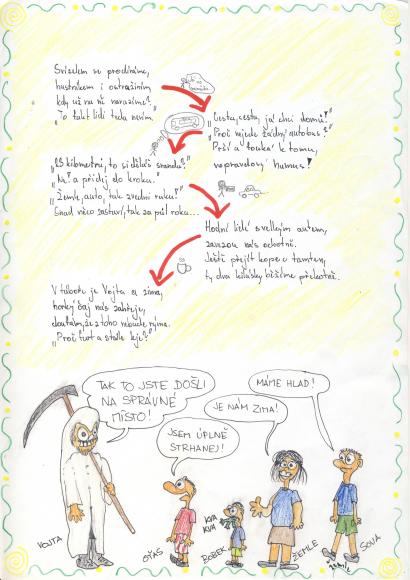 Svízelem se prodíráme,
hustníkem i ostružiním,
kdy už na ně narazíme?
"To fakt lidi tuda nevím."
"Cesta, cesta, já chci domů!"
"Proč nejede žádný autobus?"
Prší a fouká k tomu,
nepravdový humus!
"28 kilometrů, to si děláš srandu?"
"Ne! a přidej do kroku."
"Žemle, auto, tak zvedni ruku!"
Snad něco zastaví, tak za půl roku...
Hodní lidé s velkým autem,
zavezou nás ochotně.
Ještě přejít kopec tamten,
ty dva kilásky běžíme překotně.
V táboře je Vojta a zima,
horký čaj nás zahřeje,
doufám, že z toho nebude rýma.
"Proč furt a stále leje?"
TAK TO JSTE DOŠLI
NA SPRÁVNÉ
MÍSTO!
JSEM ÚPLNĚ
STRHANEJ!
JE NÁM ZIMA!
MÁME HLAD!
KVA
KVA
VOJTA
OŤAS
BOBEK
ŽEMLE
SOVA